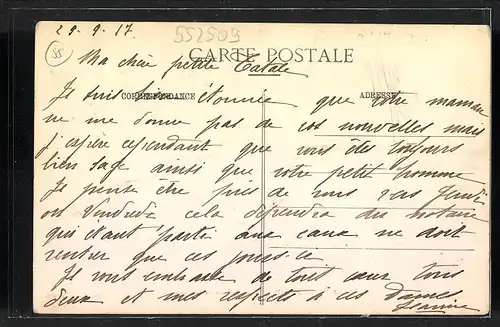 29-9-17.
552509
55
CARTE POSTALE
Ma chère petite Tatale
CORRESPONDANCE
ADRESSE
Je suis bien étonnée que votre maman
ne me donne pas de vos nouvelles mais
j'espère cependant que vous êtes toujours
bien sage ainsi que votre petit homme
Je pense être près de vous vers Jeudi
ou Vendredi cela dépendra du notaire
qui étant parti aux eaux ne doit
rentrer que ces jours-ci
Je vous embrasse de tout cœur tous
deux et mes respects à ces Dames
Jeanne